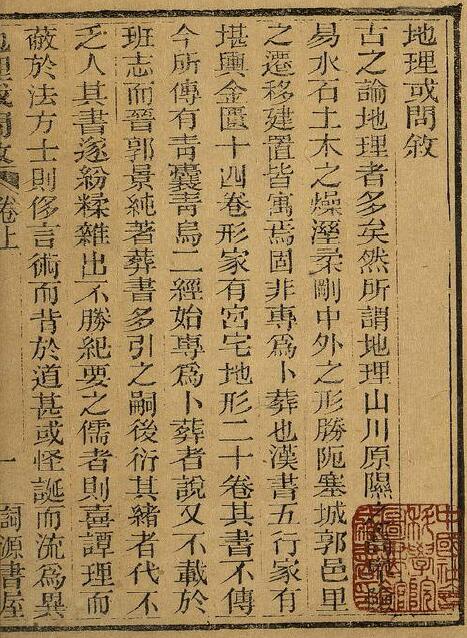 地理或問敘
古之論地理者多矣然所謂地理山川原隰之
易水石土木之燥溼柔剛中外之形勝阨塞城郭邑里
之遷移建置皆寓焉固非專爲卜葬也漢書五行家有
堪輿金匱十四卷形家有宮宅地形二十卷其書不傳
今所傳有青囊青烏二經始專爲卜葬者說又不載於
班志而晉郭景純著葬書多引之嗣後衍其緒者代不
乏人其書遂紛糅雜出不勝紀要之儒者則喜譚理而
蔽於法方士則侈言術而背於道甚或怪誕而流爲異
地理或問敘 卷上 一 詞源書屋